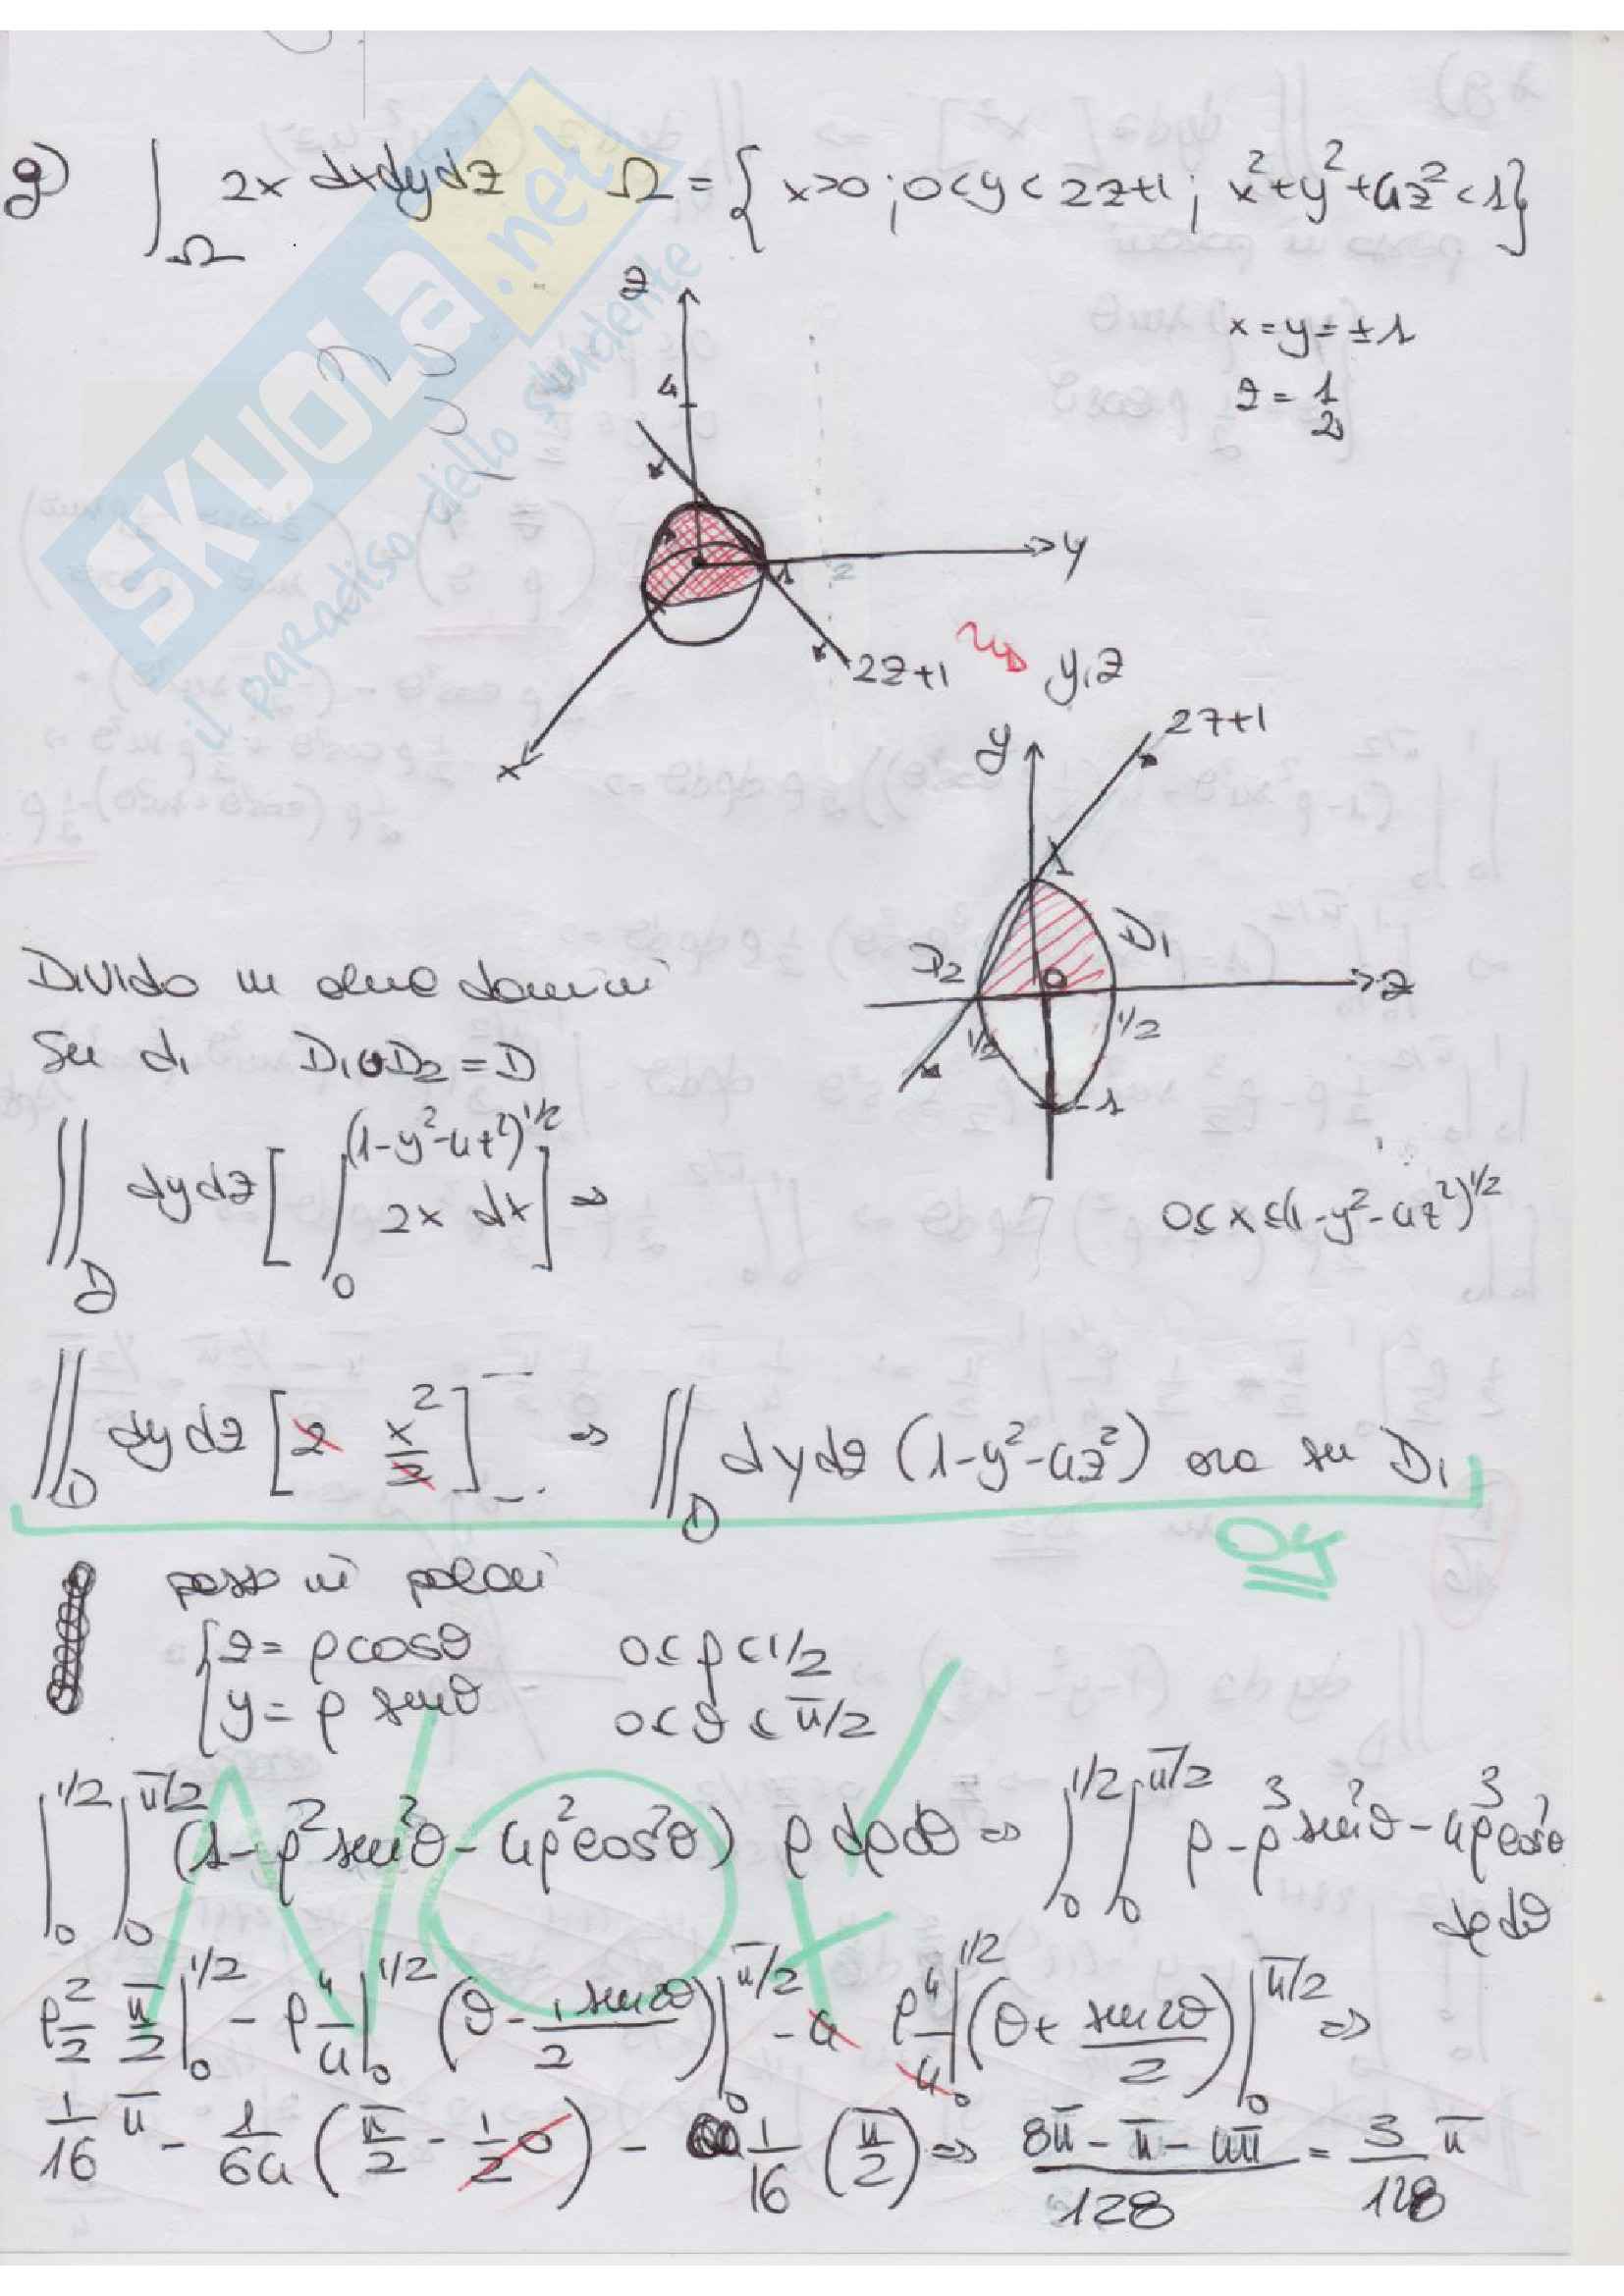 g) ∫_Ω 2x dxdydz Ω = { x>0 ; 0<y<2z+1 ; x²+y²+4z²<1}
SKUOLA.net
il paradiso dello studente
z
x = y = ±1
4
z = 1/2
y
1
2
2z+1
y,z
x
2z+1
y
1
D1
D2
0
z
1/2
1/2
-1
Divido in due domini
su di D1∪D2 = D
∬_D dydz [ ∫_0^{(1-y²-4z²)^{1/2}} 2x dx ] ⇒
0≤x≤(1-y²-4z²)^{1/2}
∬_D dydz [2 x²/2] ... ⇒ ∬_D dydz (1-y²-4z²) ora su D1
OK
passo in polari
{ z = ρcosθ 0<ρ<1/2
{ y = ρ senθ 0<θ<π/2
NO
∫_0^{1/2} ∫_0^{π/2} (1-ρ²sen²θ-4ρ²cos²θ) ρ dρdθ ⇒ ∫_0^{1/2} ∫_0^{π/2} ρ-ρ³sen²θ-4ρ³cos²θ
dρdθ
ρ²/2 π/2 |_0^{1/2} - ρ⁴/4 |_0^{1/2} (θ - 1 sen2θ/2) |_0^{π/2} - 4 ρ⁴/4 |_0^{1/2} (θ + sen2θ/2) |_0^{π/2} ⇒
1/16 π - 1/64 (π/2 - 1/2 0) - 1/16 (π/2) ⇒ 8π - π - 4π / 128 = 3/128 π